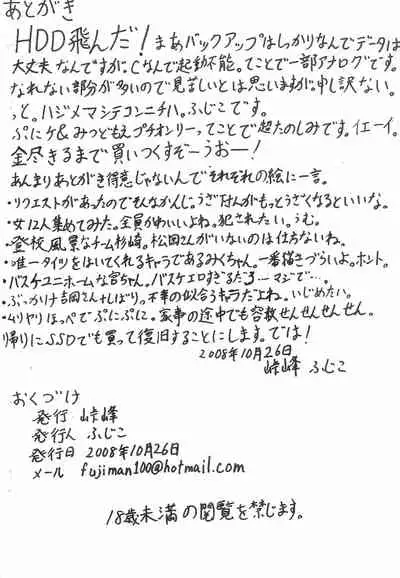 あとがき
HDD飛んだ！まあバックアップはしっかりなんでデータは
大丈夫なんですが。Cなんで起動不能。てことで一部アナログです。
なれない部分が多いので見苦しいとは思いますが申し訳ない。
っと。ハジメマシテコンニチハ。ふじこです。
ぷにケ&みつどもえプチオンリーってことで超たのしみです。イエーイ。
金尽きるまで買いつくすぞーうおー！
あんまりあとがき得意じゃないんでそれぞれの絵に一言。
・リクエストがあったのでそんなかんじ。うざ付んがもっとうざくなるといいな。
・女12人集めてみた。全員かわいいよね。犯されたい。うむ。
・登校風景なチーム杉崎。松田さんがいないのは仕方ないね。
・唯一タイツをはいてくれるキャラであるみくちゃん。一番描きづらいよ。ホント。
・バスケユニホームな宮ちゃん。バスケエロすぎるだろ…マジで…。
・ぶっかけ吉岡さん+しばり。不幸の似合うキャラだよね。いじめたい。
・ムリヤリほっぺでぷにぷに。家事の途中でも容赦せんせんせん。
帰りにSSDでも買って復旧することにします。では！
2008年10月26日
峠峰 ふじこ
おくづけ
発行 峠峰
発行人 ふじこ
発行日 2008年10月26日
メール fujiman100@hotmail.com
18歳未満の閲覧を禁じます。